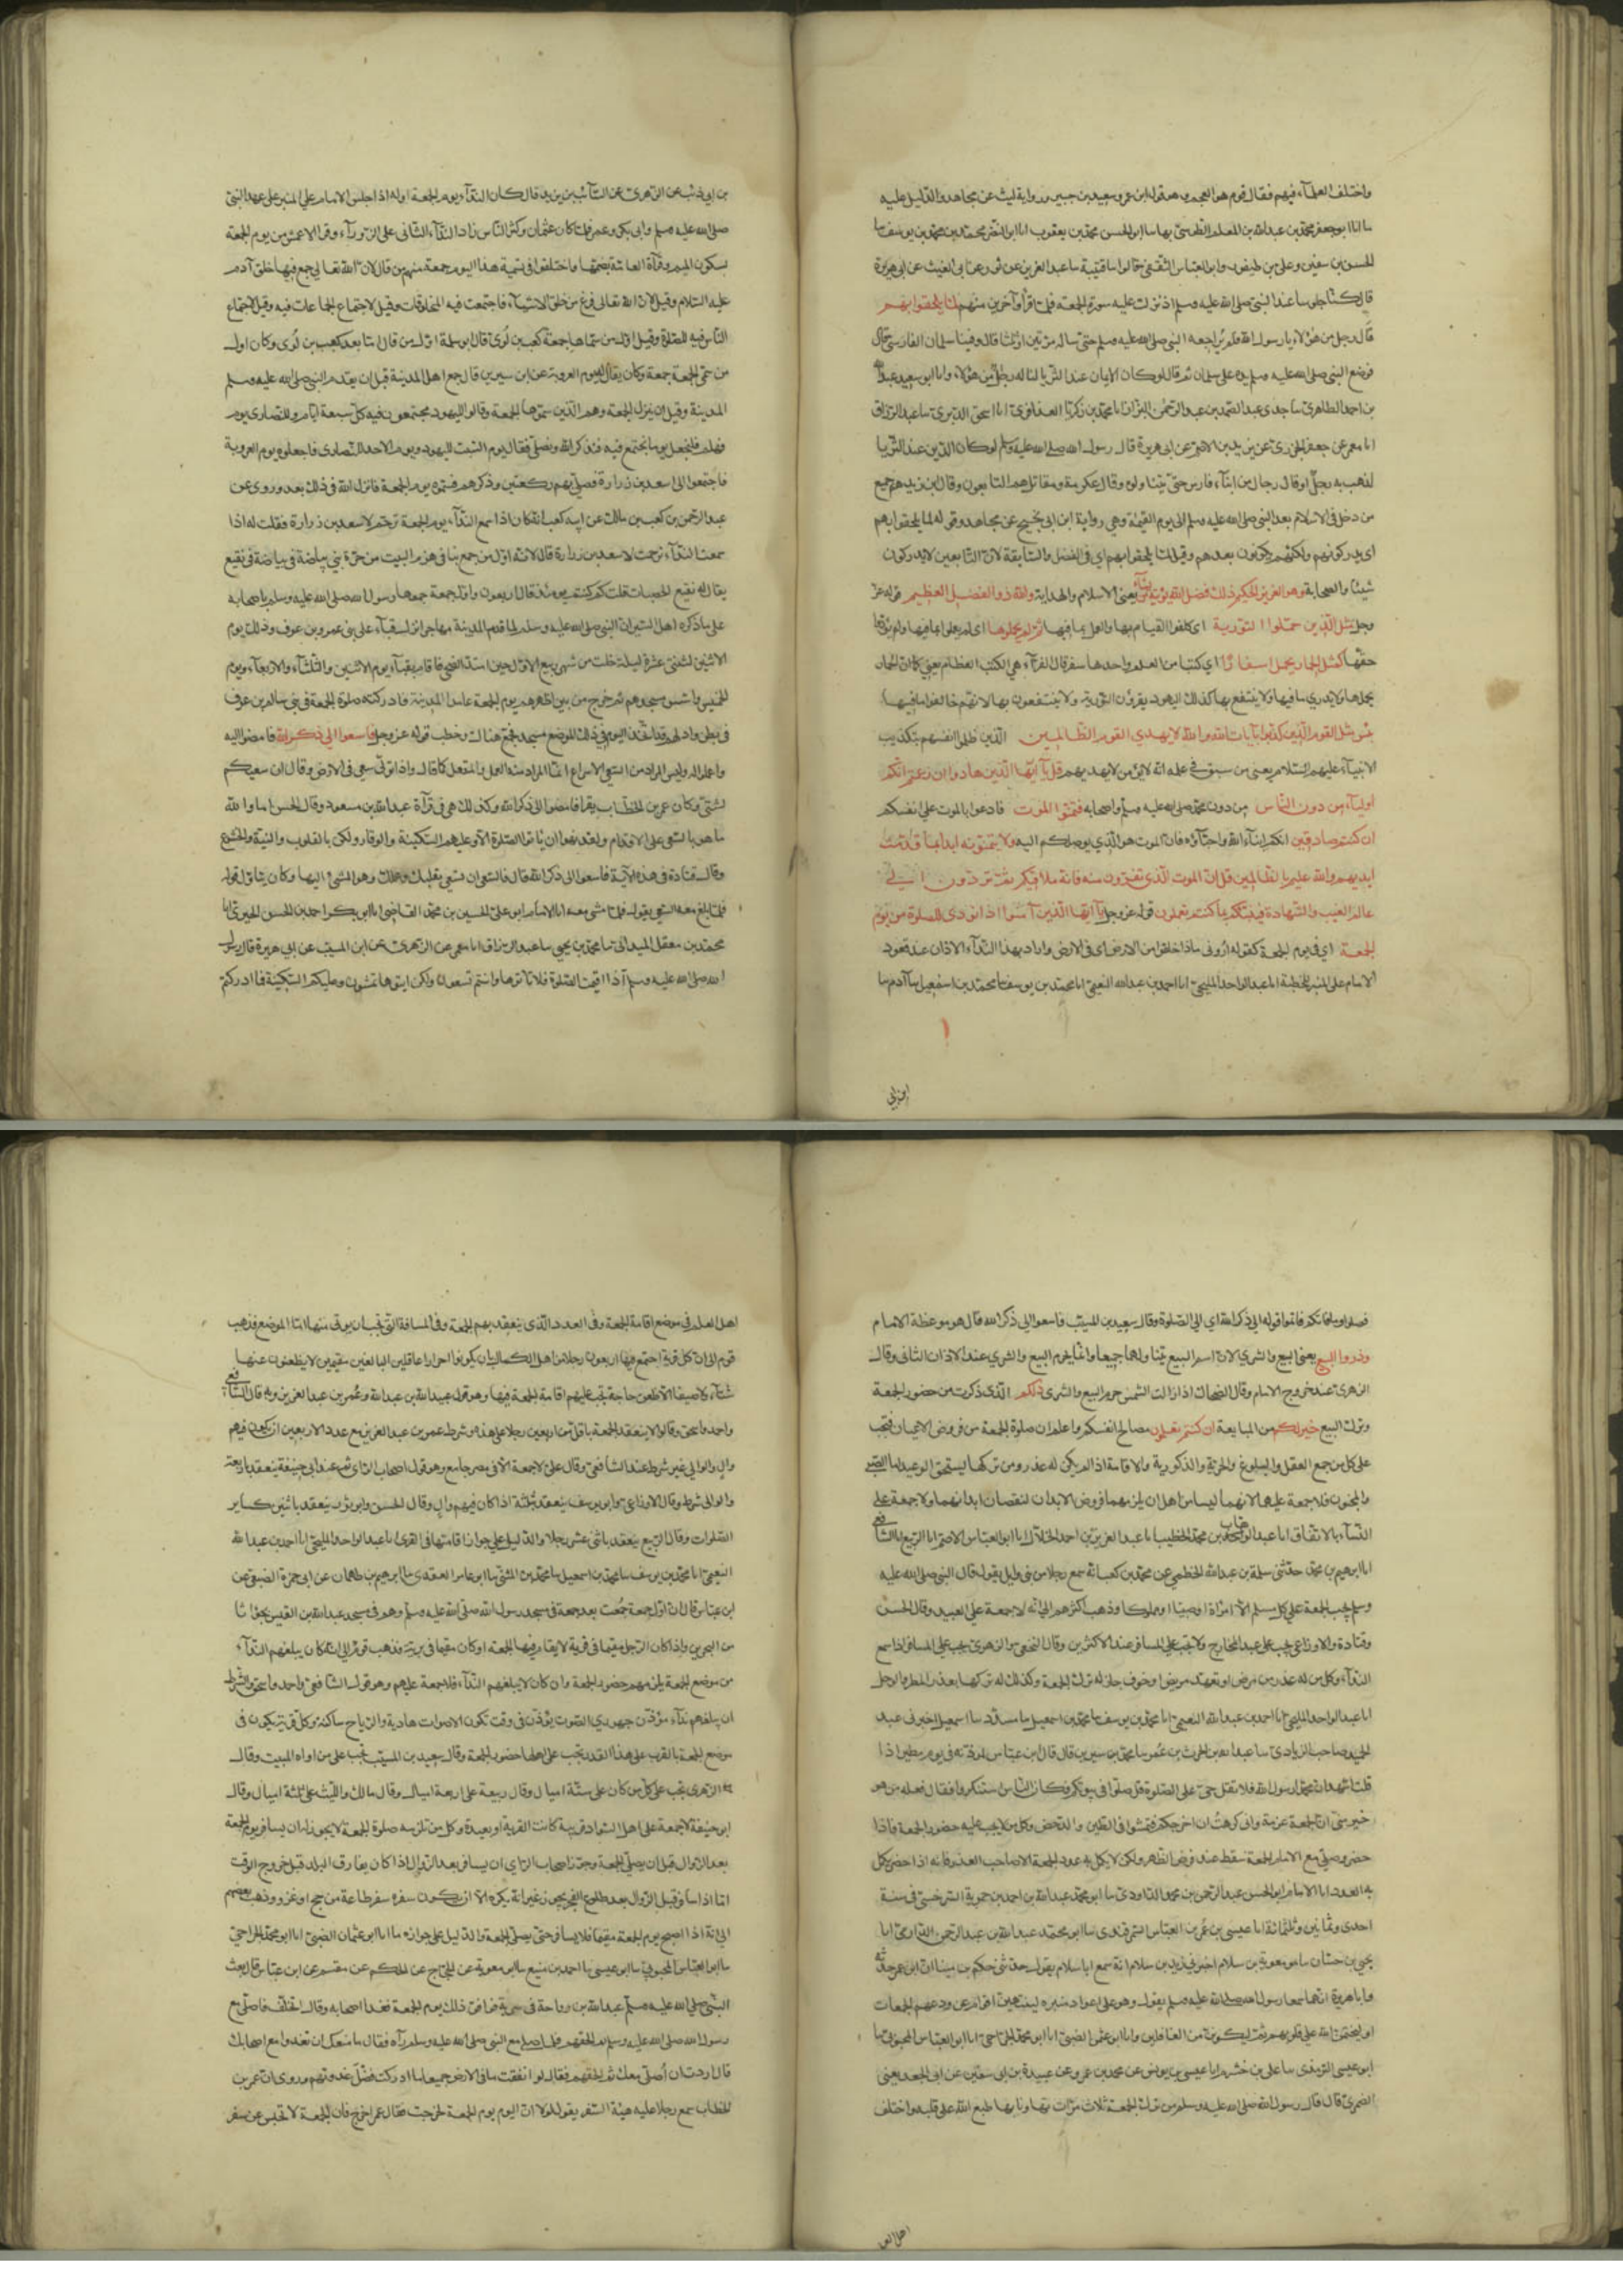 واختلف العلمآء فيهم فقال قوم هم العجم وهو قول ابن عمر وسعيد بن جبير ورواية ليث عن مجاهد والدليل عليه
ما انا ابو جعفر محمد بن عبد الله بن المعلم الطوسى بها ساابو الحسن محمد بن يعقوب انا ابو النضر محمد بن محمد بن يوسف سا
الحسن بن سفين وعلى بن طيفور وابو العباس الثقفى قالوا سا قتيبة سا عبد العزيز عن ثور عن ابى الغيث عن ابى هريرة
قال كنا جلوسا عند النبى صلى الله عليه وسلم اذ نزلت عليه سورة الجمعة فلما قرأ وآخرين منهم لما يلحقوا بهم
قال رجل من هؤلاء يارسول الله فلم يراجعه النبى صلى الله عليه وسلم حتى ساله مرتين او ثلثا قال وفينا سلمان الفارسى قال
فوضع النبى صلى الله عليه وسلم يده على سلمان ثم قال لوكان الايمان عند الثريا لناله رجال من هؤلاء وانا ابو سعيد عبد الله
بن احمد الطاهرى سا جدى عبد الصمد بن عبد الرحمن البزاز انا محمد بن زكريا العذافرى انا اسحق الدبرى سا عبد الرزاق
انا معمر عن جعفر الجزرى عن يزيد بن الاصم عن ابى هريرة قال رسول الله صلى الله عليه وسلم لوكان الدين عند الثريا
لذهب به رجل او قال رجال من ابنآء فارس حتى يتناولوه وقال عكرمة ومقاتل هم التابعون وقال ابن زيد هم جميع
من دخل فى الاسلام بعد النبى صلى الله عليه وسلم الى يوم القيمة وهي رواية ابن ابى نجيح عن مجاهد وقوله لما يلحقوا بهم
اى يدركونهم ولكنهم يكونون بعدهم وقيل لما يلحقوا بهم اي فى الفضل والسابقة لان التابعين لا يدركون
شيئا والصحابة وهو العزيز الحكيم ذلك فضل الله يؤتيه من يشآء يعنى الاسلام والهداية والله ذو الفضل العظيم قوله عز
وجل مثل الذين حملوا التورية اى كلفوا القيام بها والعمل بما فيها ثم لم يحملوها اى لم يعملوا بما فيها ولم يؤدوا
حقها كمثل الحمار يحمل اسفارًا اي كتبا من العلم واحدها سفر قال الفرآء هي الكتب العظام يعنى كما ان الحمار
يحملها ولا يدري ما فيها ولا ينتفع بها كذلك اليهود يقرؤن التورية ولا ينتفعون بها لانهم خالفوا ما فيها
بئس مثل القوم الذين كذبوا بآيات الله والله لا يهدي القوم الظالمين الذين ظلموا انفسهم بتكذيب
الانبيآء عليهم السلام يعنى من سبق فى علمه انه لا يؤمن لا يهديهم قل يآ ايها الذين هادوا ان زعمتم انكم
اوليآء من دون الناس من دون محمد صلى الله عليه وسلم واصحابه فتمنوا الموت فادعوا بالموت على انفسكم
ان كنتم صادقين انكم ابنآء الله واحبآؤه فان الموت هو الذي يوصلكم اليه ولا يتمنونه ابدا بما قدمت
ايديهم والله عليم بالظالمين قل ان الموت الذى تفرون منه فانه ملاقيكم ثم تردون الى
عالم الغيب والشهادة فينبئكم بما كنتم تعملون قوله عز وجل يآ ايها الذين آمنوا اذا نودى للصلوة من يوم
الجمعة اي فى يوم الجمعة كقوله ارونى ماذا خلقوا من الارض اى فى الارض واراد بهذا الندآء الاذان عند قعود
الامام على المنبر للخطبة انا عبد الواحد المليحى انا احمد بن عبد الله النعيمى انا محمد بن يوسف سا محمد بن اسمعيل سا آدم سا
ابن ابى
بن ابى ذئب عن الزهرى عن السآئب بن يزيد قال كان الندآء يوم الجمعة اوله اذا جلس الامام على المنبر على عهد النبى
صلى الله عليه وسلم وابى بكر وعمر فلما كان عثمان وكثر الناس زاد الندآء الثانى على الزورآء وقرا الاعمش من يوم الجمعة
بسكون الميم وقرآة العامة بضمها واختلفوا فى تسمية هذا اليوم جمعة منهم من قال لان الله تعالى جمع فيها خلق آدم
عليه السلام وقيل لان الله تعالى فرغ من خلق الاشيآء فاجتمعت فيه المخلوقات وقيل لاجتماع الجماعات فيه وقيل لاجتماع
الناس فيه للصلوة وقيل اول من سماها جمعة كعب بن لؤى قال ابو سلمة اول من قال اما بعد كعب بن لؤى وكان اول
من سمى الجمعة جمعة وكان يقال له يوم العروبة عن ابن سيرين قال جمع اهل المدينة قبل ان يقدم النبى صلى الله عليه وسلم
المدينة وقيل ان ينزل الجمعة وهم الذين سموها الجمعة وقالوا لليهود يجتمعون فيه كل سبعة ايام وللنصارى يوم
فهلم فلنجعل يوما نجتمع فيه فنذكر الله ونصلى فقالوا يوم السبت لليهود ويوم الاحد للنصارى فاجعلوه يوم العروبة
فاجتمعوا الى اسعد بن زرارة فصلى بهم ركعتين وذكرهم فسموه يوم الجمعة فانزل الله فى ذلك بعد وروى عن
عبد الرحمن بن كعب بن مالك عن ابيه كعب انه كان اذا سمع الندآء يوم الجمعة ترحم لاسعد بن زرارة فقلت له اذا
سمعت الندآء ترحمت لاسعد بن زرارة قال لانه اول من جمع بنا فى هزم البيت من حرة بني بياضة فى بياضة فى نقيع
يقال له نقيع الخصمات قلت كم كنتم يومئذ قال اربعون واول جمعة جمعها رسول الله صلى الله عليه وسلم باصحابه
على ما ذكره اهل السير ان النبى صلى الله عليه وسلم لما قدم المدينة مهاجرا نزل بقبآء على بنى عمرو بن عوف وذلك يوم
الاثنين لثنتى عشرة ليلة خلت من شهر ربيع الاول حين امتد الضحى فاقام بقبآء يوم الاثنين والثلثآء والاربعآء ويوم
الخميس واسس مسجدهم ثم خرج من بين اظهرهم يوم الجمعة عامدا المدينة فادركته صلوة الجمعة فى بنى سالم بن عوف
فى بطن واد لهم قد اتخذ اليوم فى ذلك الموضع مسجد فجمع هناك وخطب قوله عز وجل فاسعوا الى ذكر الله فامضوا اليه
واعملوا له وليس المراد من السعى الاسراع انما المراد منه العمل والفعل كما قال واذا تولى سعى فى الارض وقال ان سعيكم
لشتى وكان عمر بن الخطاب يقرا فامضوا الى ذكر الله وكذلك هى فى قرآة عبد الله بن مسعود وقال الحسن اما والله
ما هو بالسعى على الاقدام ولقد نهوا ان ياتوا الصلوة الا وعليهم السكينة والوقار ولكن بالقلوب والنية والخشوع
وقال قتادة فى هذه الآية فاسعوا الى ذكر الله قال فالسعى ان تسعى بقلبك وعملك وهو المشى اليها وكان يتاول قوله
فلما بلغ معه السعى يقول فلما مشى معه انا الامام ابو على الحسين بن محمد القاضى انا ابو بكر احمد بن الحسن الحيرى انا
محمد بن معقل الميدانى سا محمد بن يحيى سا عبد الرزاق انا معمر عن الزهرى عن ابن المسيب عن ابى هريرة قال رسول
الله صلى الله عليه وسلم اذا اقيمت الصلوة فلا تاتوها وانتم تسعون ولكن ايتوها تمشون وعليكم السكينة فما ادركتم
فصلوا وما فاتكم فاتموا قوله الى ذكر الله اي الى الصلوة وقال سعيد بن المسيب فاسعوا الى ذكر الله قال هو موعظة الامام
وذروا البيع يعنى البيع والشرى لان اسم البيع يتناولهما جميعا وانما يحرم البيع والشرى عند الاذان الثانى وقال
الزهرى عند خروج الامام وقال الضحاك اذا زالت الشمس حرم البيع والشرى ذلكم الذى ذكرت من حضور الجمعة
وترك البيع خير لكم من المبايعة ان كنتم تعلمون مصالح انفسكم واعلم ان صلوة الجمعة من فروض الاعيان فتجب
على كل من جمع العقل والبلوغ والحرية والذكورية والاقامة اذا لم يكن له عذر ومن تركها يستحق الوعيد اما الصبى
والمجنون فلا جمعة عليهما لانهما ليسا من اهل ان يلزمهما فروض الابدان لنقصان ابدانهما ولا جمعة على
النسآء بالاتفاق انا عبد الوهاب بن محمد الخطيب انا عبد العزيز بن احمد الخلال انا ابو العباس الاصم انا الربيع انا الشافعى
انا ابرهيم بن محمد حدثنى سلمة بن عبد الله الخطمى عن محمد بن كعب انه سمع رجلا من بنى وايل يقول قال النبى صلى الله عليه
وسلم تجب الجمعة على كل مسلم الا امراة او صبيا او مملوكا وذهب اكثرهم الى انه لا جمعة على العبيد وقال الحسن
وقتادة والاوزاعى تجب على عبد المخارج ولا تجب على المسافر عند الاكثرين وقال النخعى والزهرى تجب على المسافر اذا سمع
الندآء وكل من له عذر من مرض او تعهد مريض او خوف جاز له ترك الجمعة وكذلك له تركها بعذر المطر والوحل
انا عبد الواحد المليحى انا احمد بن عبد الله النعيمى انا محمد بن يوسف سا محمد بن اسمعيل سا مسدد سا اسمعيل اخبرنى عبد
الحميد صاحب الزيادى سا عبد الله بن الحارث بن عم محمد بن سيرين قال قال ابن عباس لمؤذنه فى يوم مطير اذا
قلت اشهد ان محمدا رسول الله فلا تقل حى على الصلوة قل صلوا فى بيوتكم فكان الناس استنكروا فقال فعله من هو
خير منى ان الجمعة عزمة وانى كرهت ان اخرجكم فتمشوا فى الطين والدحض وكل من لا يجب عليه حضور الجمعة فاذا
حضر وصلى مع الامام الجمعة سقط عنه فرض الظهر ولكن لا يكمل به عدد الجمعة الا صاحب العذر فانه اذا حضر يكمل
به العدد انا الامام ابو الحسن عبد الرحمن بن محمد الداودى سا ابو محمد عبد الله بن احمد بن حموية السرخسى فى سنة
احدى وثمانين وثلثمائة انا عيسى بن عمر بن العباس السمرقندى سا ابو محمد عبد الله بن عبد الرحمن الدارمى انا
يحيى بن حسان سا معوية بن سلام اخبرنى زيد بن سلام انه سمع ابا سلام يقول حدثنى حكم بن مينا ان ابن عمر حدثه
وابا هريرة انهما سمعا رسول الله صلى الله عليه وسلم يقول وهو على اعواد منبره لينتهين اقوام عن ودعهم الجمعات
او ليختمن الله على قلوبهم ثم ليكونن من الغافلين وانا ابو عثمن الضبى انا ابو محمد الجراحى انا ابو العباس المحبوبى سا
ابو عيسى الترمذى سا على بن خشرم انا عيسى بن يونس عن محمد بن عمرو عن عبيدة بن ابى سفين عن ابى الجعد يعنى
الضمرى قال قال رسول الله صلى الله عليه وسلم من ترك الجمعة ثلاث مرات تهاونا بها طبع الله على قلبه واختلف
اهل العلم
اهل العلم فى موضع اقامة الجمعة وفى العدد الذى ينعقد بهم الجمعة وفى المسافة التى تجب ان يوتى منها اما الموضع فذهب
قوم الى ان كل قرية اجتمع فيها اربعون رجلا من اهل الكمال بان يكونوا احرارا عاقلين البالغين مقيمين لا يظعنون عنها
شتآء ولا صيفا الا ظعن حاجة تجب عليهم اقامة الجمعة فيها وهو قول عبيد الله بن عبد الله وعمر بن عبد العزيز وبه قال الشافعى
واحمد واسحق وقالوا لا ينعقد الجمعة باقل من اربعين رجلا على هذه وشرط عمر بن عبد العزيز مع عدد الاربعين ان يكون فيهم
وال والوالى غير شرط عند الشافعى وقال على لا جمعة الا فى مصر جامع وهو قول اصحاب الراى ثم عند ابى حنيفة ينعقد باربعة
والوالى شرط وقال الاوزاعى وابو يوسف ينعقد بثلثة اذا كان فيهم وال وقال الحسن وابو ثور ينعقد باثنين كساير
الصلوات وقال الربيع ينعقد باثنى عشر رجلا والدليل على جواز اقامتها فى القرى ما انا عبد الواحد المليحى انا احمد بن عبد الله
النعيمى انا محمد بن يوسف سا محمد بن اسمعيل سا محمد بن المثنى سا ابو عامر العقدى سا ابرهيم بن طهمان عن ابى جمرة الضبعى عن
ابن عباس قال ان اول جمعة جمعت بعد جمعة فى مسجد رسول الله صلى الله عليه وسلم وهو فى مسجد عبد القيس بجواثا
من البحرين واذا كان الرجل مقيما فى قرية لا يقام فيها الجمعة او كان مقيما فى برية فذهب قوم الى انه ان كان يبلغهم الندآء
من موضع الجمعة يلزمهم حضور الجمعة وان كان لا يبلغهم الندآء فلا جمعة عليهم وهو قول الشافعى واحمد واسحق والشرط
ان يبلغهم ندآء مؤذن جهورى الصوت يؤذن فى وقت تكون الاصوات هادية والرياح ساكنة وكل قرية يكون فى
موضع الجمعة بالقرب على هذا القدر يجب على اهلها حضور الجمعة وقال سعيد بن المسيب تجب على من اواه المبيت وقال
الزهرى تجب على كل من كان على ستة اميال وقال ربيعة على اربعة اميال وقال مالك والليث على ثلثة اميال وقال
ابو حنيفة لا جمعة على اهل السواد قريبة كانت القرية او بعيدة وكل من تلزمه صلوة الجمعة لا يجوز له ان يسافر يوم الجمعة
بعد الزوال قبل ان يصلى الجمعة وجوز اصحاب الراى ان يسافر بعد الزوال اذا كان يفارق البلد قبل خروج الوقت
اما اذا سافر قبل الزوال بعد طلوع الفجر يجوز غير انه يكره الا ان يكون سفره سفر طاعة من حج او غزو وذهب بعضهم
الى انه اذا اصبح يوم الجمعة مقيما فلا يسافر حتى يصلى الجمعة والدليل على جوازه ما انا ابو عثمان الضبى انا ابو محمد الجراحى
سا ابو العباس المحبوبى سا ابو عيسى سا احمد بن منيع سا ابو معوية عن الحجاج عن الحكم عن مقسم عن ابن عباس قال بعث
النبى صلى الله عليه وسلم عبد الله بن رواحة فى سرية فوافق ذلك يوم الجمعة فغدا اصحابه وقال اتخلف فاصلى مع
رسول الله صلى الله عليه وسلم ثم الحقهم فلما صلى مع النبى صلى الله عليه وسلم رآه فقال ما منعك ان تغدوا مع اصحابك
قال اردت ان اصلى معك ثم الحقهم فقال لو انفقت ما فى الارض جميعا ما ادركت فضل غدوتهم وروى ان عمر بن
الخطاب سمع رجلا عليه هيئة السفر يقول لولا ان اليوم يوم الجمعة لخرجت فقال عمر اخرج فان الجمعة لا تحبس عن سفر